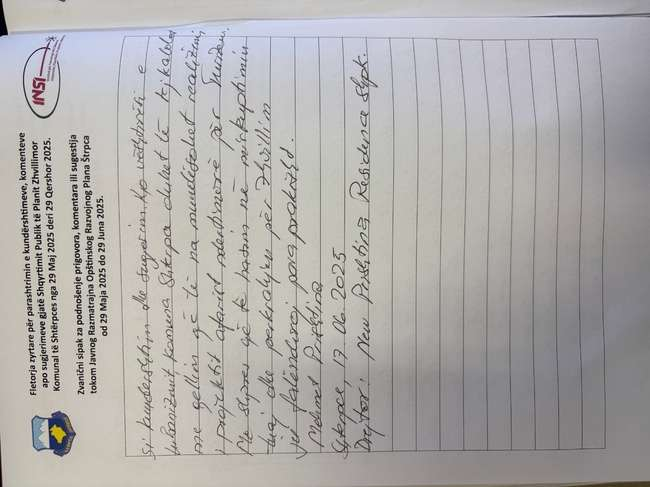 Fletorja zyrtare për parashtrimin e kundërshtimeve, komenteve
apo sugjerimeve gjatë Shqyrtimit Publik të Planit Zhvillimor
Komunal të Shtërpces nga 29 Maj 2025 deri 29 Qershor 2025.
Zvanični sipak za podnošenje prigovora, komentara ili sugestija
tokom Javnog Razmatrajna Opštinskog Razvojnog Plana Štrpca
od 29 Maja 2025 do 29 Juna 2025.
INSI
Si kundërshtim dhe sugjerim kjo vështirësi e
Urbanizmit komuna Shterpca duhet të
me qellim që të na mundësohet realizimi
i projektit afarist rdentimorë për
Me shpres që të hasim në mirkuptimin
tuaj dhe perkrahjen për Zhvillim
Ju falenderoj paraprakisht.
Mehmet Prishtina
Shterpcë, 17.06.2025
Drejtori New Prishtina Residence Shpk.